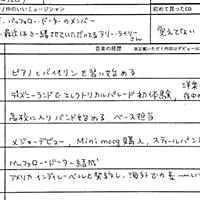 仲のいいミュージシャン
初めて買ったCD
バッファロー・ドーターのメンバー
最近よく一緒させていただいてるテリー・ライリーさん
覚えてない
音楽の経歴 ※記載いただく内容はデビュー
ピアノとバイオリンを習い始める
ディズニーランドでエレクトリカルパレード初体験,
高校に入りバンドを始める ベース担当
メジャーデビュー, Mini moog 購入, スティールパン
バッファロー・ドーター結成
アメリカ インディレーベルと契約し, 海外での